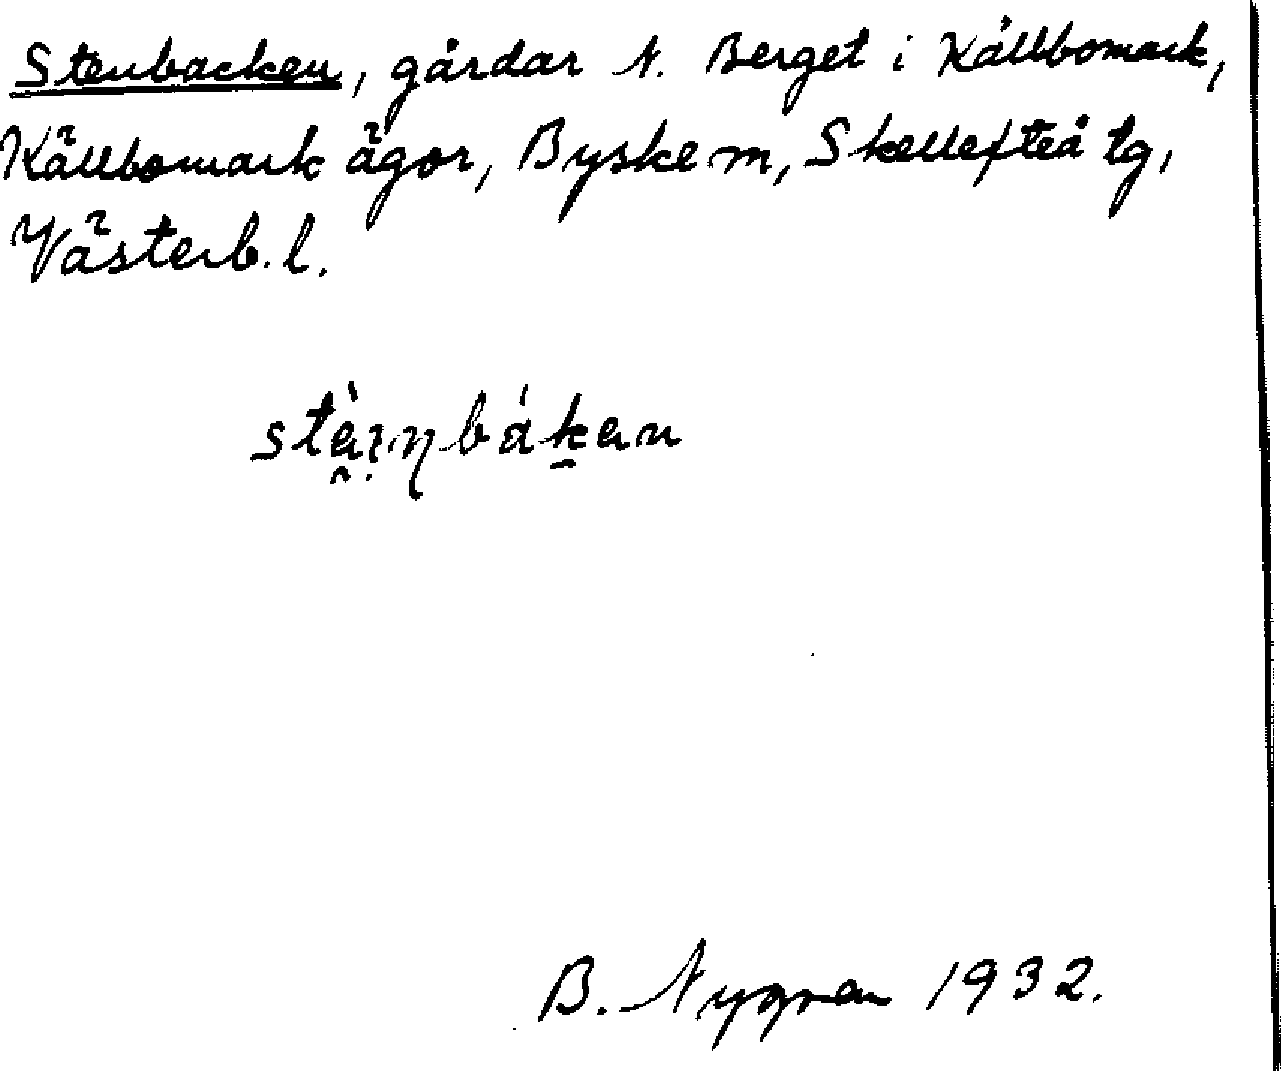 Stenbacken, gårdar N. Berget i Källbomark,
Källbomark ägor, Byske m, Skellefteå tg,
Västerb. l.
B. Nygren 1932.